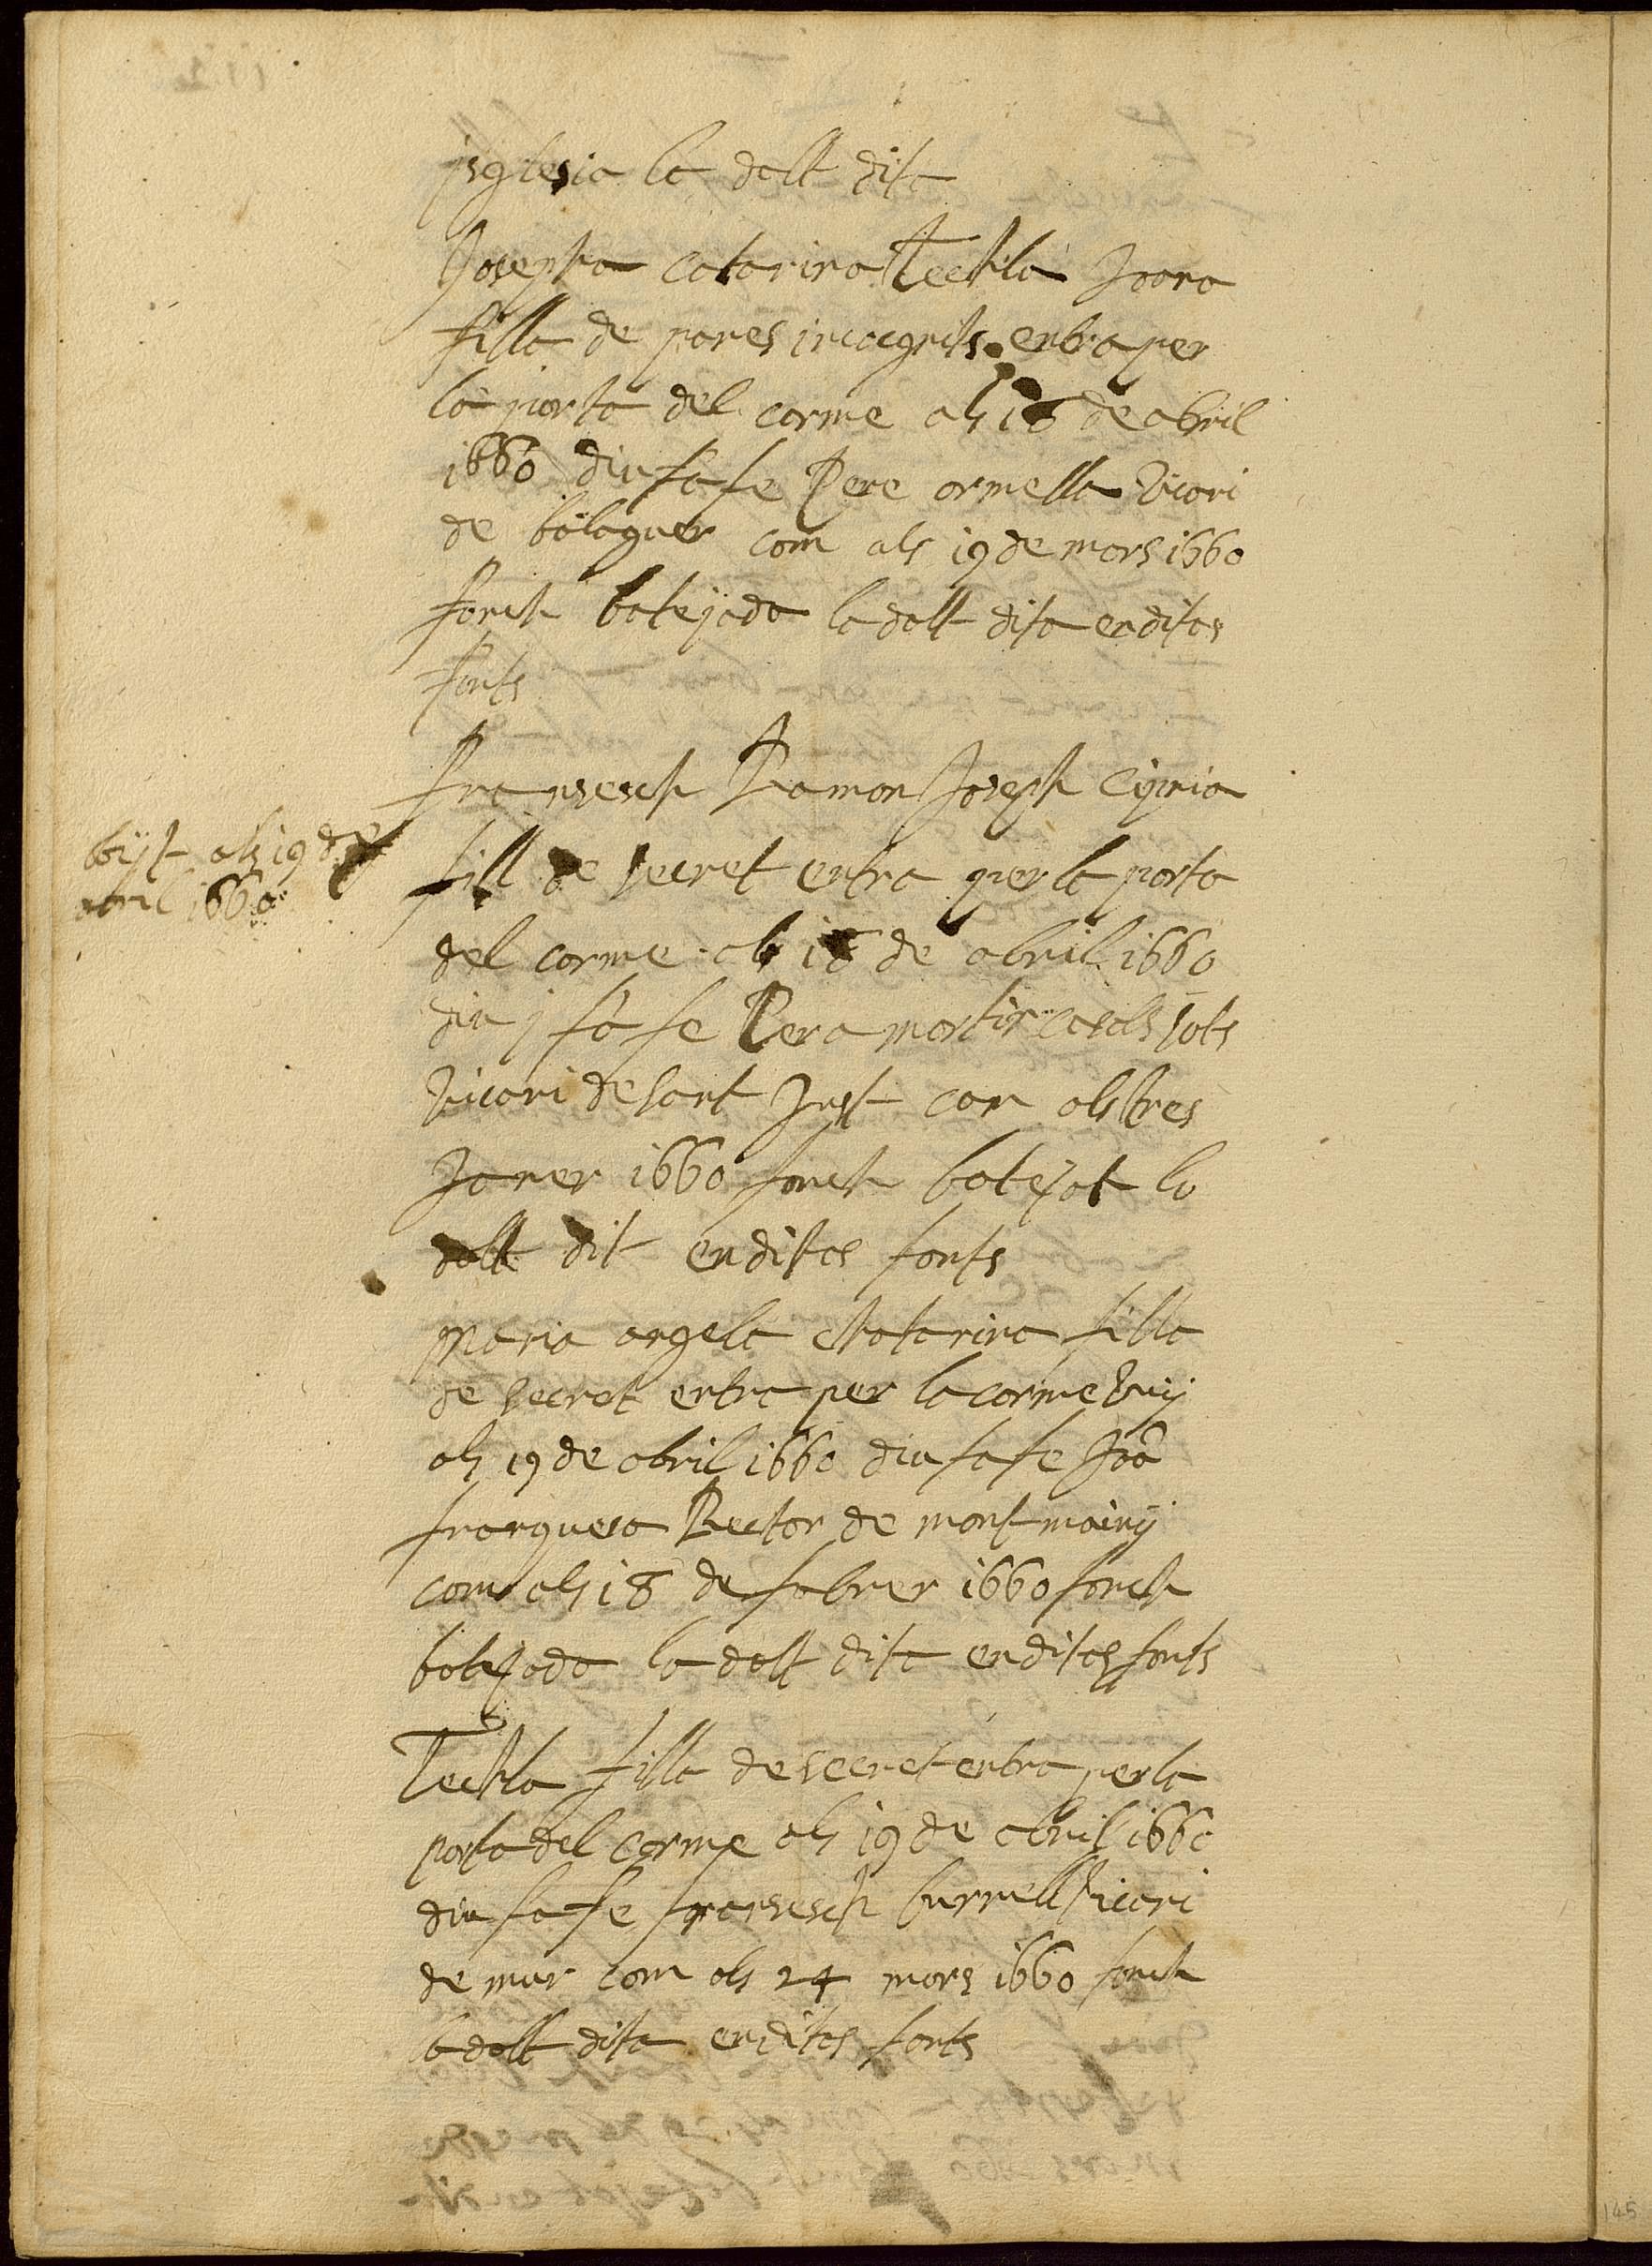 jsglesia la dalt dita
Josepha Catarina Teckla Joana
filla de pares incognits entra per
la porta del carme als 18 de abril
1660 diu fa fe Pere ormella Vicari
de balaguer com als 19 de mars 1660
fonch batejada la dalt dita en ditas
fonts
fransesch Ramon Joseph Cipria
fill de secret entra per la porta
del carme als 18 de abril 1660
diu j fa fe Pera martir casals sots
Vicari de sant Just com als tres
Janer 1660 fonch batejat lo
dalt dit en ditas fonts
vist als 19 de
abril 1660
Maria angela Chatarina filla
de secret entra per la carme vuy
als 19 de abril 1660 diu fa fe Joā
franquesa Rector de montmainy
com als 18 de fabrer 1660 fonch
batejada la dalt dita en ditas fonts
Teckla filla de secret entra per la
porta del carme als 19 de abril 1660
diu fa fe fransesch burrell Vicari
de mur com als 24 mars 1660 fonch
la dalt dita en ditas fonts
145